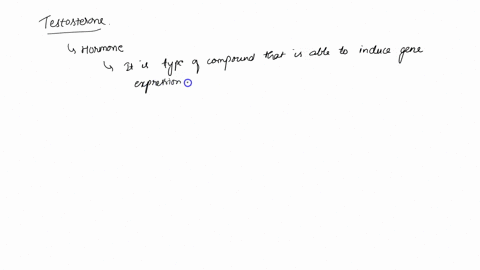 Testosterone.
↳ Hormone
↳ It is type of compound that is able to induce gene
expression